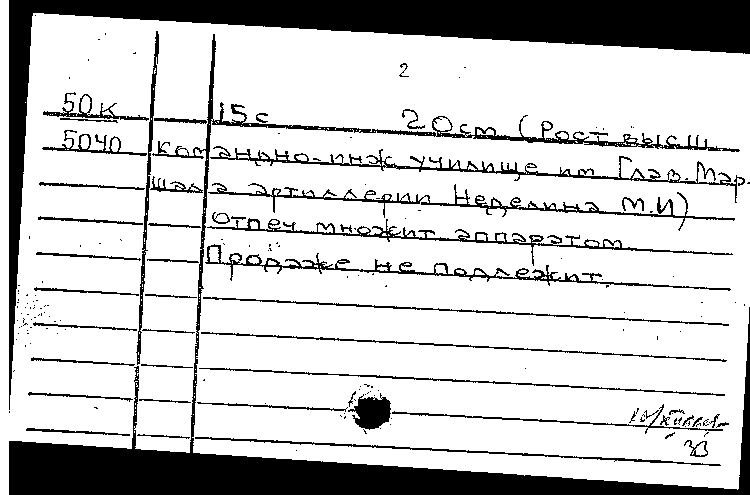 2
50к 15с 20см (Рост высш
5040 командно-инж училище им Глав. Мар-
шала артиллерии Неделина М.И)
Отпеч множит аппаратом
Продаже не подлежит.